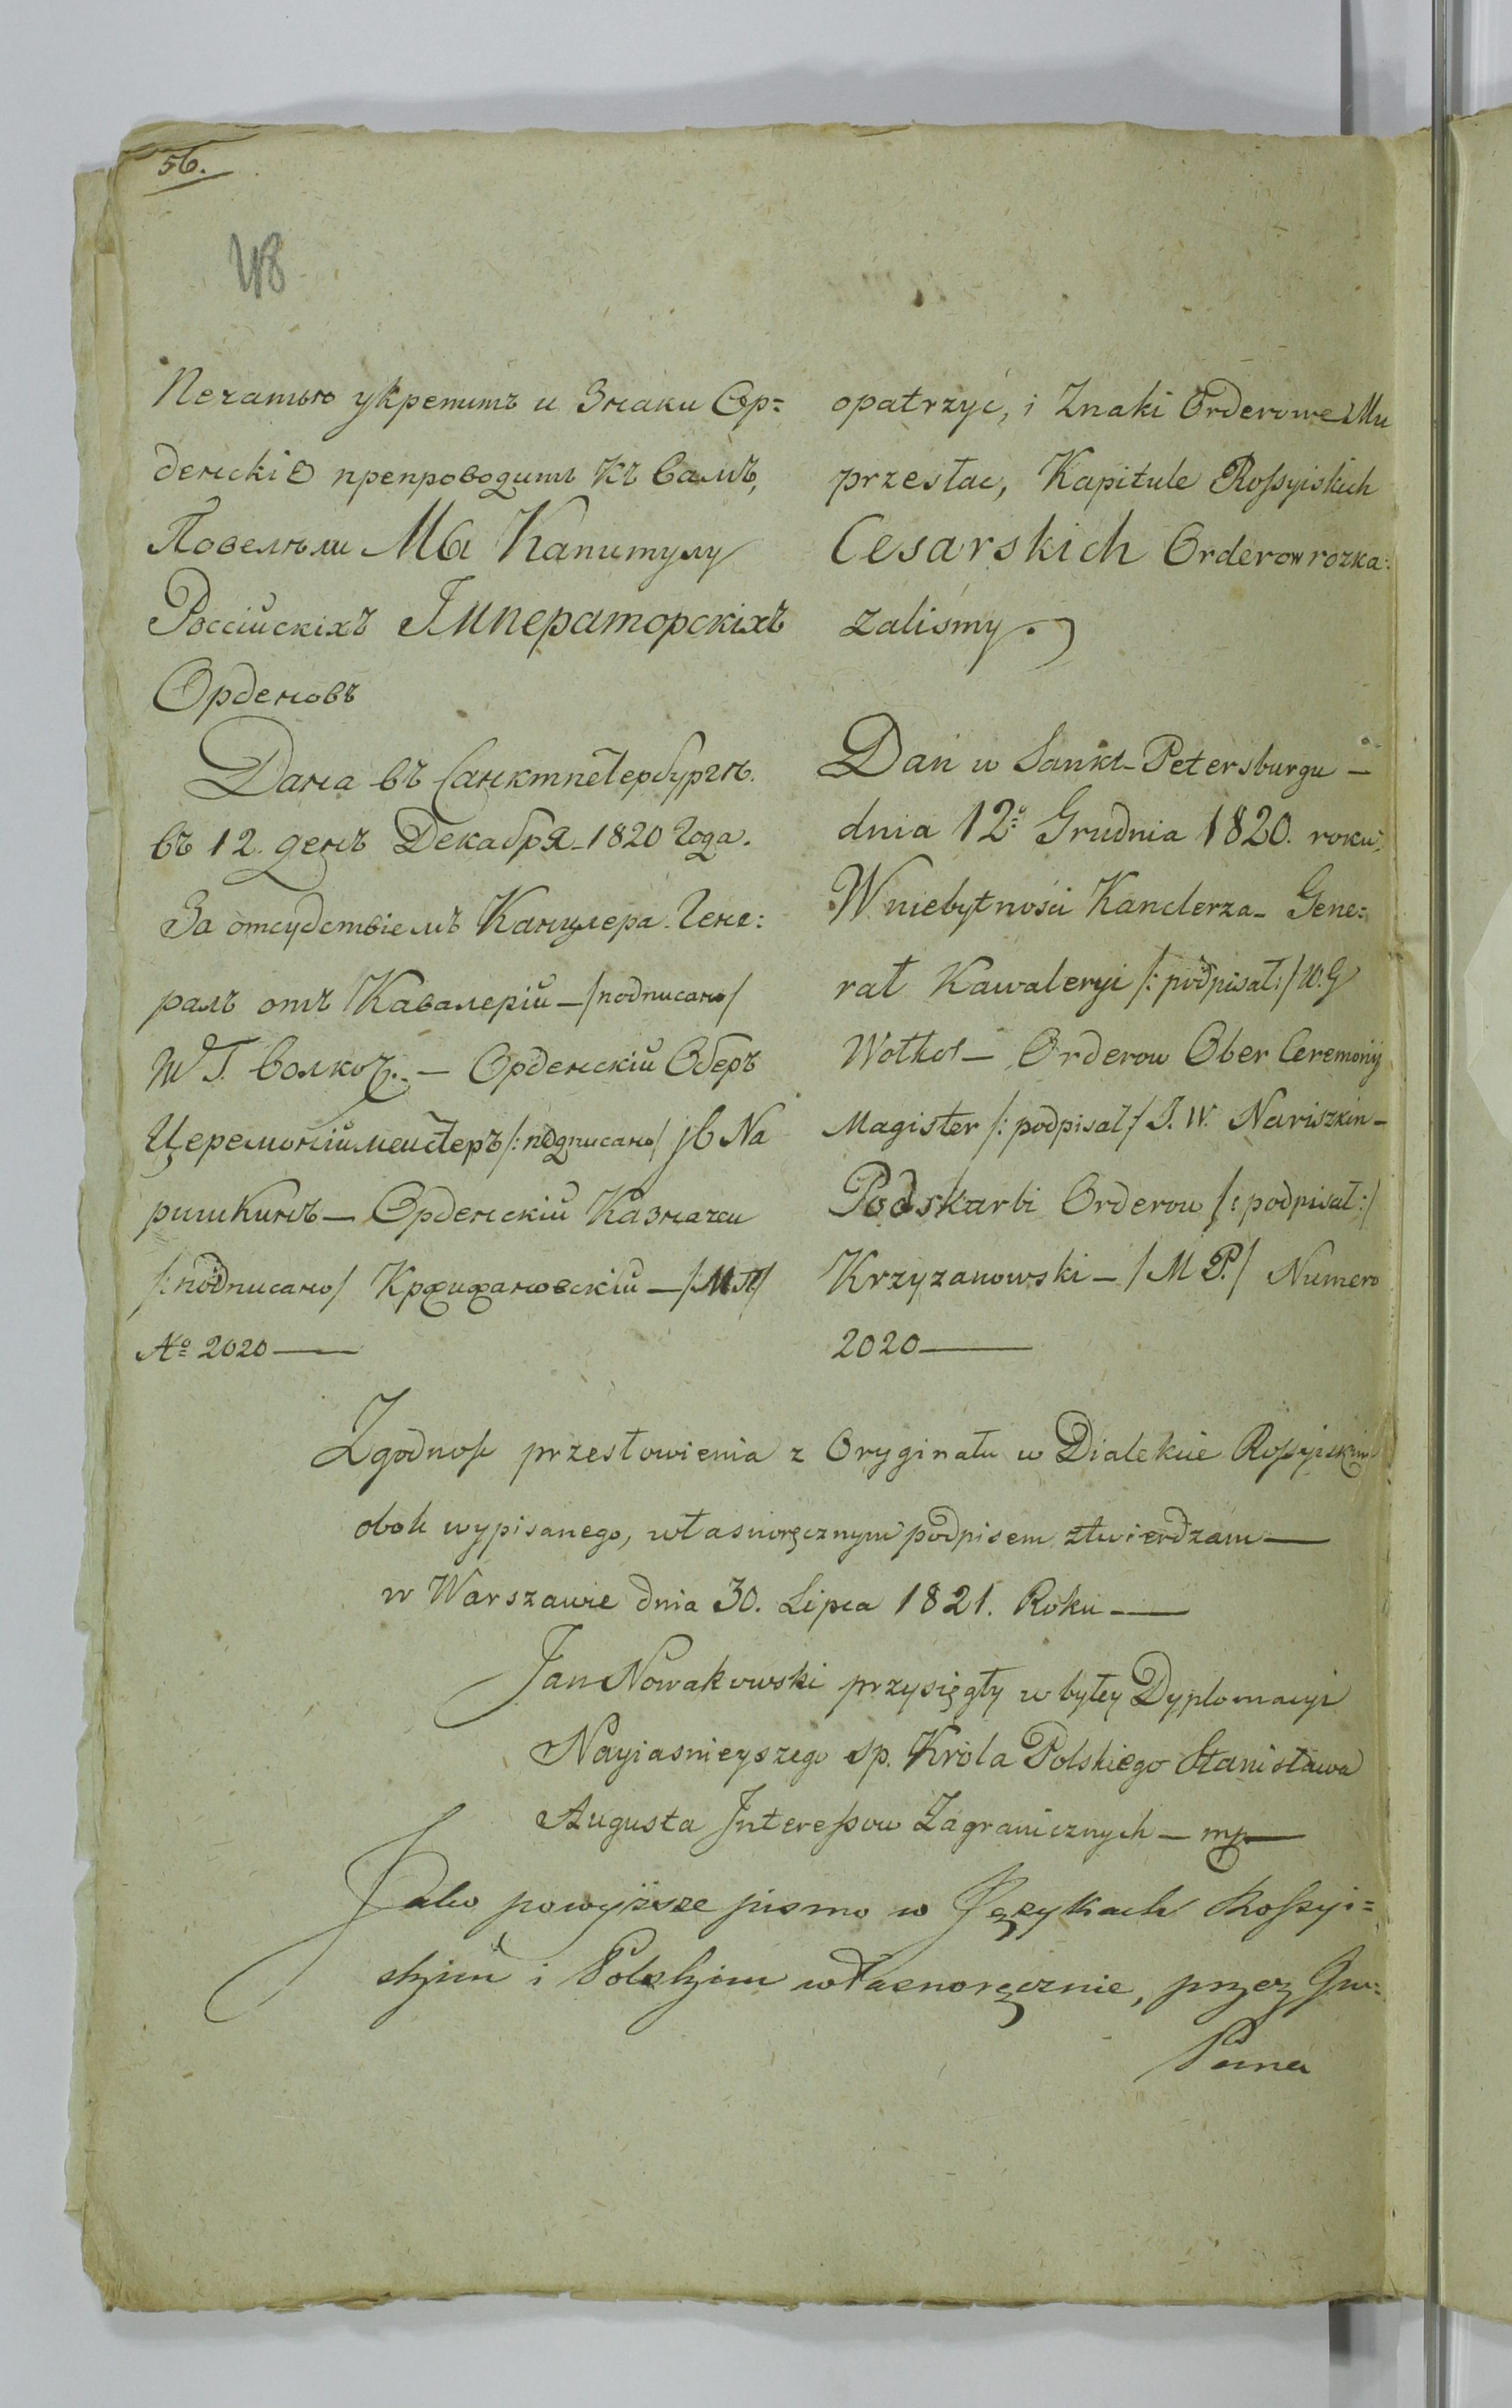 56.
48
Печатью укрепить и Знаки Ор=
денскіе препроводить къ Вамъ,
Повелѣли Мы Капитулу
Россійскихъ Императорскихъ
Орденовъ
Дана въ Санктпетербургѣ.
въ 12. день Декабря 1820 Года.
За отсудствіемъ Канцлера. Гене:
ралъ отъ Кавалеріи — /подписано/
Орденскій Оберъ
Церемоніймейстеръ /: подписано/ На
ришкинъ — Орденскій Казначеи
/: подписано/ — /: М П/
№ 2020 —
opatrzyć, i Znaki Orderowe Mu
przesłac, Kapitule Rossyiskich
Cesarskich Orderow rozka:
zaliśmy.
Dan w Sankt-Petersburgu —
dnia 12º Grudnia 1820. roku.
W niebytnosci Kanclerza - Gene:
rał Kawaleryi /: podpisał :/ W. G
Wołkof — Orderow Ober Ceremonij
Magister /: podpisał :/ J. W. Nariszkin —
Podskarbi Orderow /: podpisał :/
Krzyzanowski — /M P./ Numero
2020 —
Zgodnosc przesłowienia z Oryginału w Dialekcie Rossyiskim
obok wypisanego, własnoręcznym podpisem ztwierdzam —
w Warszawie dnia 30. Lipca 1821. Roku —
Jan Nowakowski przysięgły w byłey Dyplomacyi
Nayiasnieyszego sp. Króla Polskiego Stanisława
Augusta Interessow Zagranicznych — mp
Jako powyższe pismo w Językach Rossyi=
skim i Polskim własnoręcznie, przez Jmć:
Pana